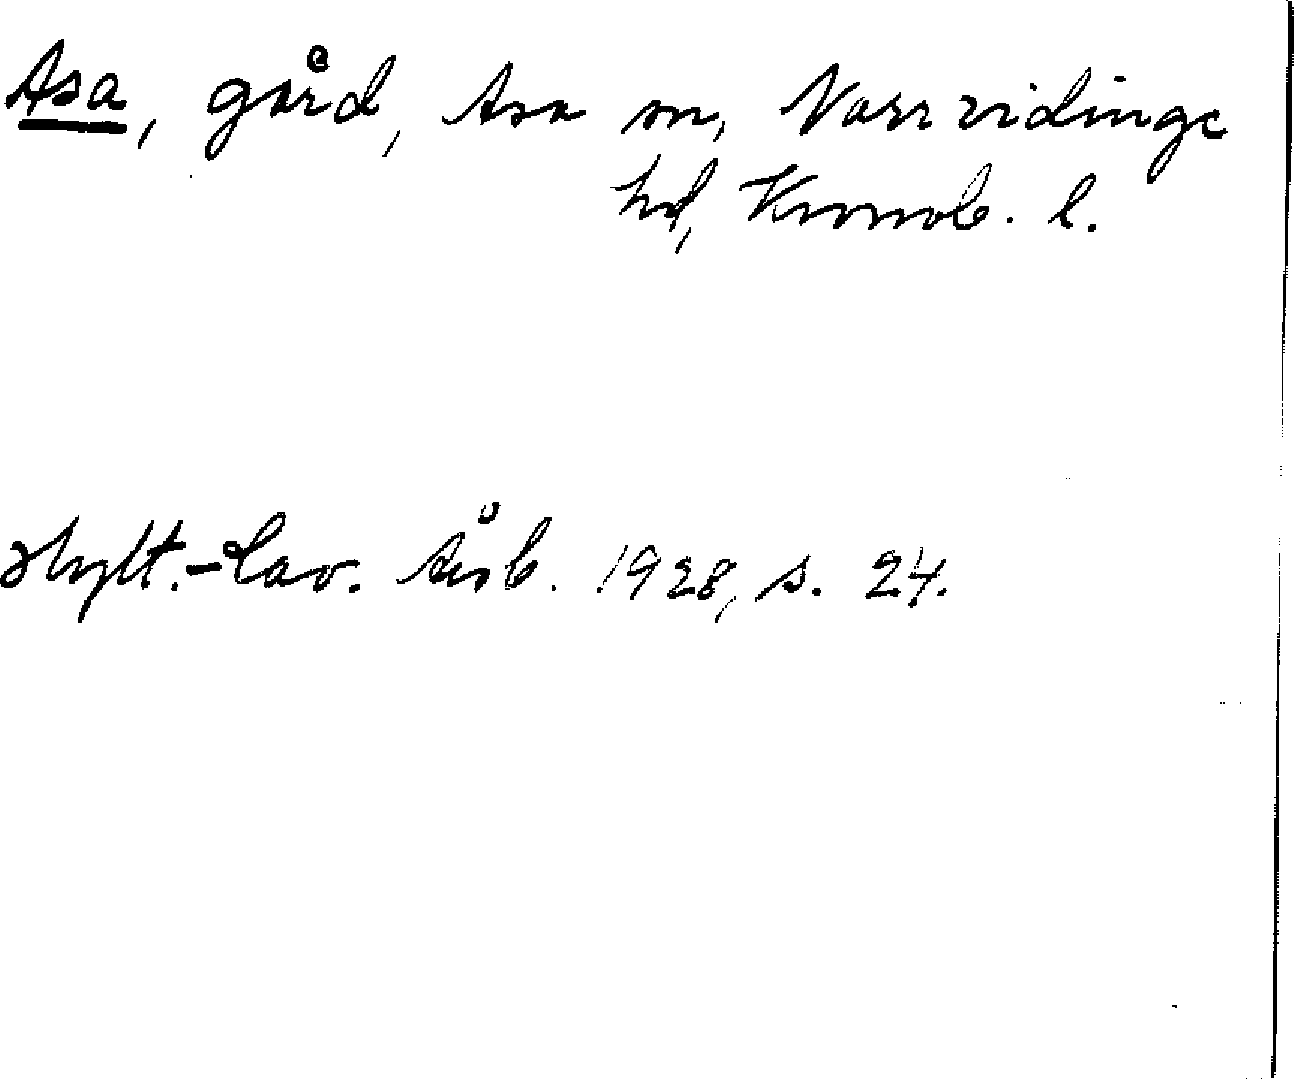 Asa, gård, Asa sn, Norrvidinge
hd, Kronob. l.
Hylt.-Cav. Årsb. 1928, s. 24.